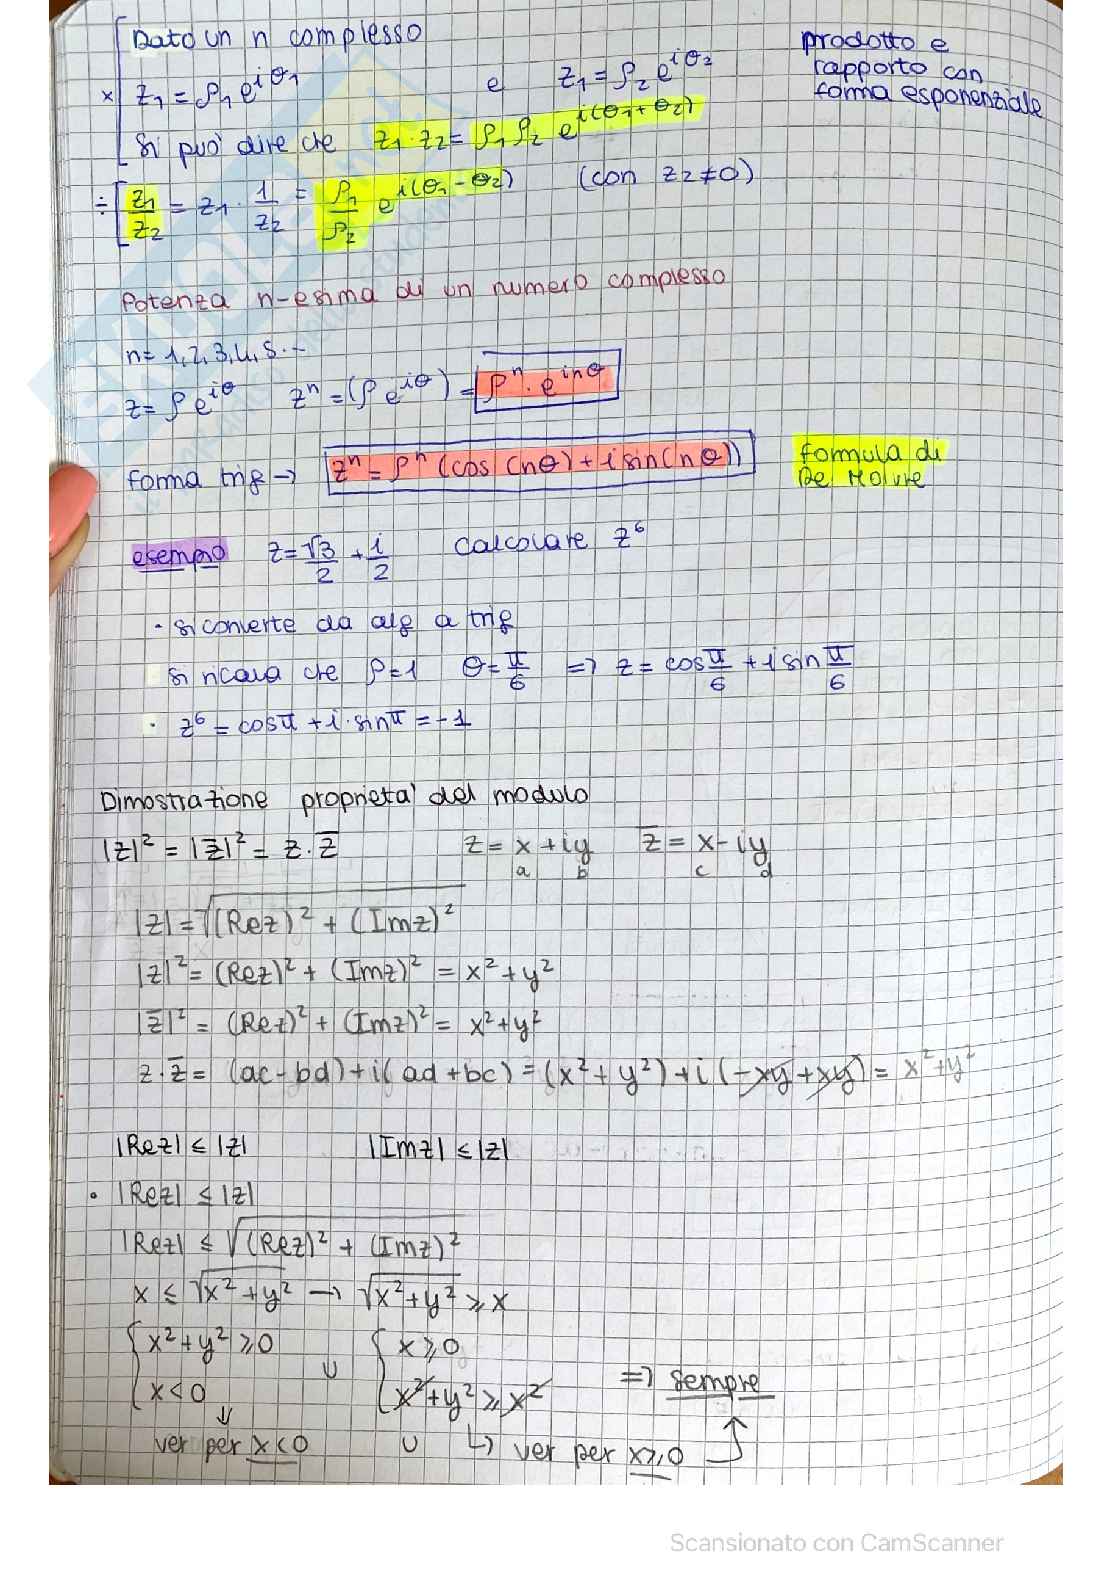 Dato un n complesso
z₁ = ρ₁e^{iθ₁} e z₁ = ρ₂e^{iθ₂}
prodotto e
rapporto con
forma esponenziale
×
si può dire che z₁·z₂ = ρ₁ρ₂ e^{i(θ₁+θ₂)}
÷ z₁/z₂ = z₁ · 1/z₂ = ρ₁/ρ₂ e^{i(θ₁-θ₂)} (con z₂≠0)
Potenza n-esima di un numero complesso
n= 1,2,3,4,5..
z= ρe^{iθ} zⁿ = (ρe^{iθ}) = ρⁿ·e^{inθ}
forma trig → zⁿ = ρⁿ (cos(nθ) + i sin(nθ)) formula di
De Moivre
esempio z= √3/2 + i/2 calcolare z⁶
· si converte da alg a trig
si ricava che ρ=1 θ= π/6 => z= cos π/6 + i sin π/6
· z⁶ = cosπ + i·sinπ = -1
Dimostrazione proprietà del modulo
|z|² = |z̅|² = z·z̅ z= x + iy z̅ = x - iy
a b c d
|z| = √((Rez)² + (Imz)²
|z|² = (Rez)² + (Imz)² = x² + y²
|z̅|² = (Rez)² + (Imz)² = x² + y²
z·z̅ = (ac-bd) + i(ad+bc) = (x² + y²) + i(-xy + xy) = x² + y²
|Rez| ≤ |z| |Imz| ≤ |z|
• |Rez| ≤ |z|
|Rez| ≤ √(Rez)² + (Imz)²
x ≤ √x² + y² → √x² + y² ≥ x
{ x² + y² ≥ 0 ∪ { x ≥ 0
{ x < 0 { x² + y² ≥ x² => sempre
↓
ver per x<0 ∪ ↳ ver per x≥0
Scansionato con CamScanner